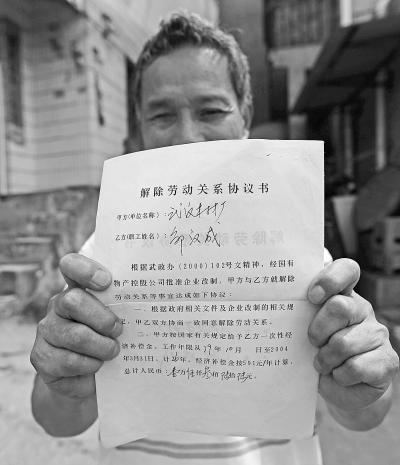 解除劳动关系协议书
甲方(单位名称)：武汉木材厂
乙方(职工姓名)：邹汉成
根据武政办(2000)102号文精神，经国有
物产控股公司批准企业改制，甲方与乙方就解除
劳动关系等事宜达成如下协议：
一、根据政府相关文件及企业改制的相关规
定，甲乙双方协商一致同意解除劳动关系。
二、甲方按国家有关规定给予乙方一次性经
济补偿金，工作年限从79年10月 日至2004
年3月31日，计 年，经济补偿金按501元/年计算，
总计人民币：